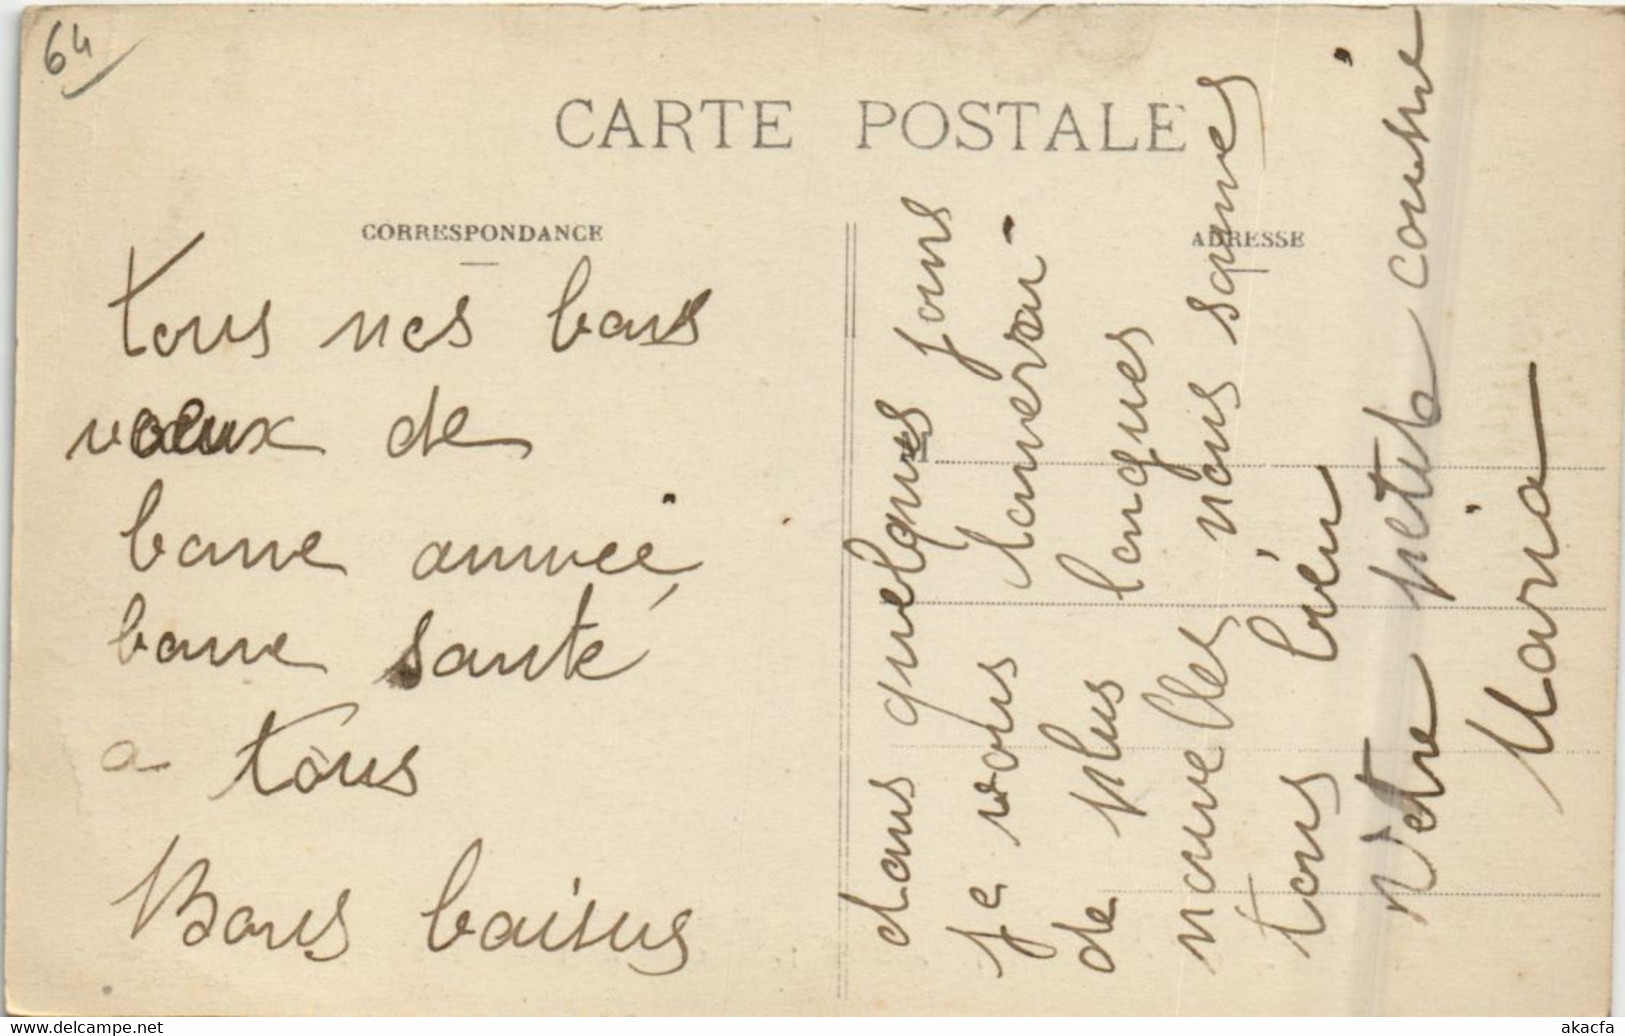 64
CARTE POSTALE
CORRESPONDANCE
ADRESSE
tous nos bons
voeux de
bonne année,
bonne santé
a tous
Bons baisers
dans quelques jours
je vous donnerai
de plus longues
nouvelles nous sommes
tous bien
Votre petite cousine
Maria
www.delcampe.net
akacfa